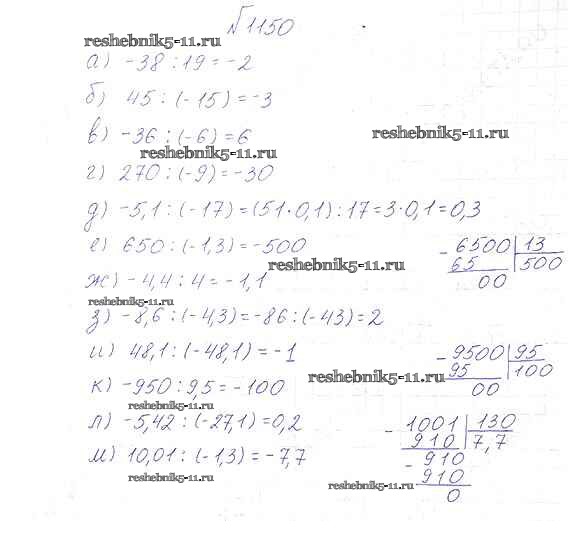 №1150
reshebnik5-11.ru
а) -38 : 19 = -2
б) 45 : (-15) = -3
в) -36 : (-6) = 6
reshebnik5-11.ru
reshebnik5-11.ru
г) 270 : (-9) = -30
д) -5,1 : (-17) = (51·0,1) : 17 = 3·0,1 = 0,3
е) 650 : (-1,3) = -500
- 6500 | 13
65 | 500
00
reshebnik5-11.ru
ж) -4,4 : 4 = -1,1
reshebnik5-11.ru
з) -8,6 : (-4,3) = -86 : (-43) = 2
и) 48,1 : (-48,1) = -1
- 9500 | 95
95 | 100
00
reshebnik5-11.ru
к) -950 : 9,5 = -100
reshebnik5-11.ru
л) -5,42 : (-27,1) = 0,2
- 1001 | 130
910 | 7,7
- 910
910
0
м) 10,01 : (-1,3) = -7,7
reshebnik5-11.ru
reshebnik5-11.ru